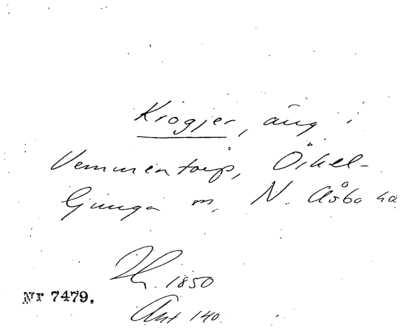 Krogjer, äng i
Vemmentorp, Örkel-
ljunga sn, N. Åsbo hd
1850
Nr 7479.
Ant 140.